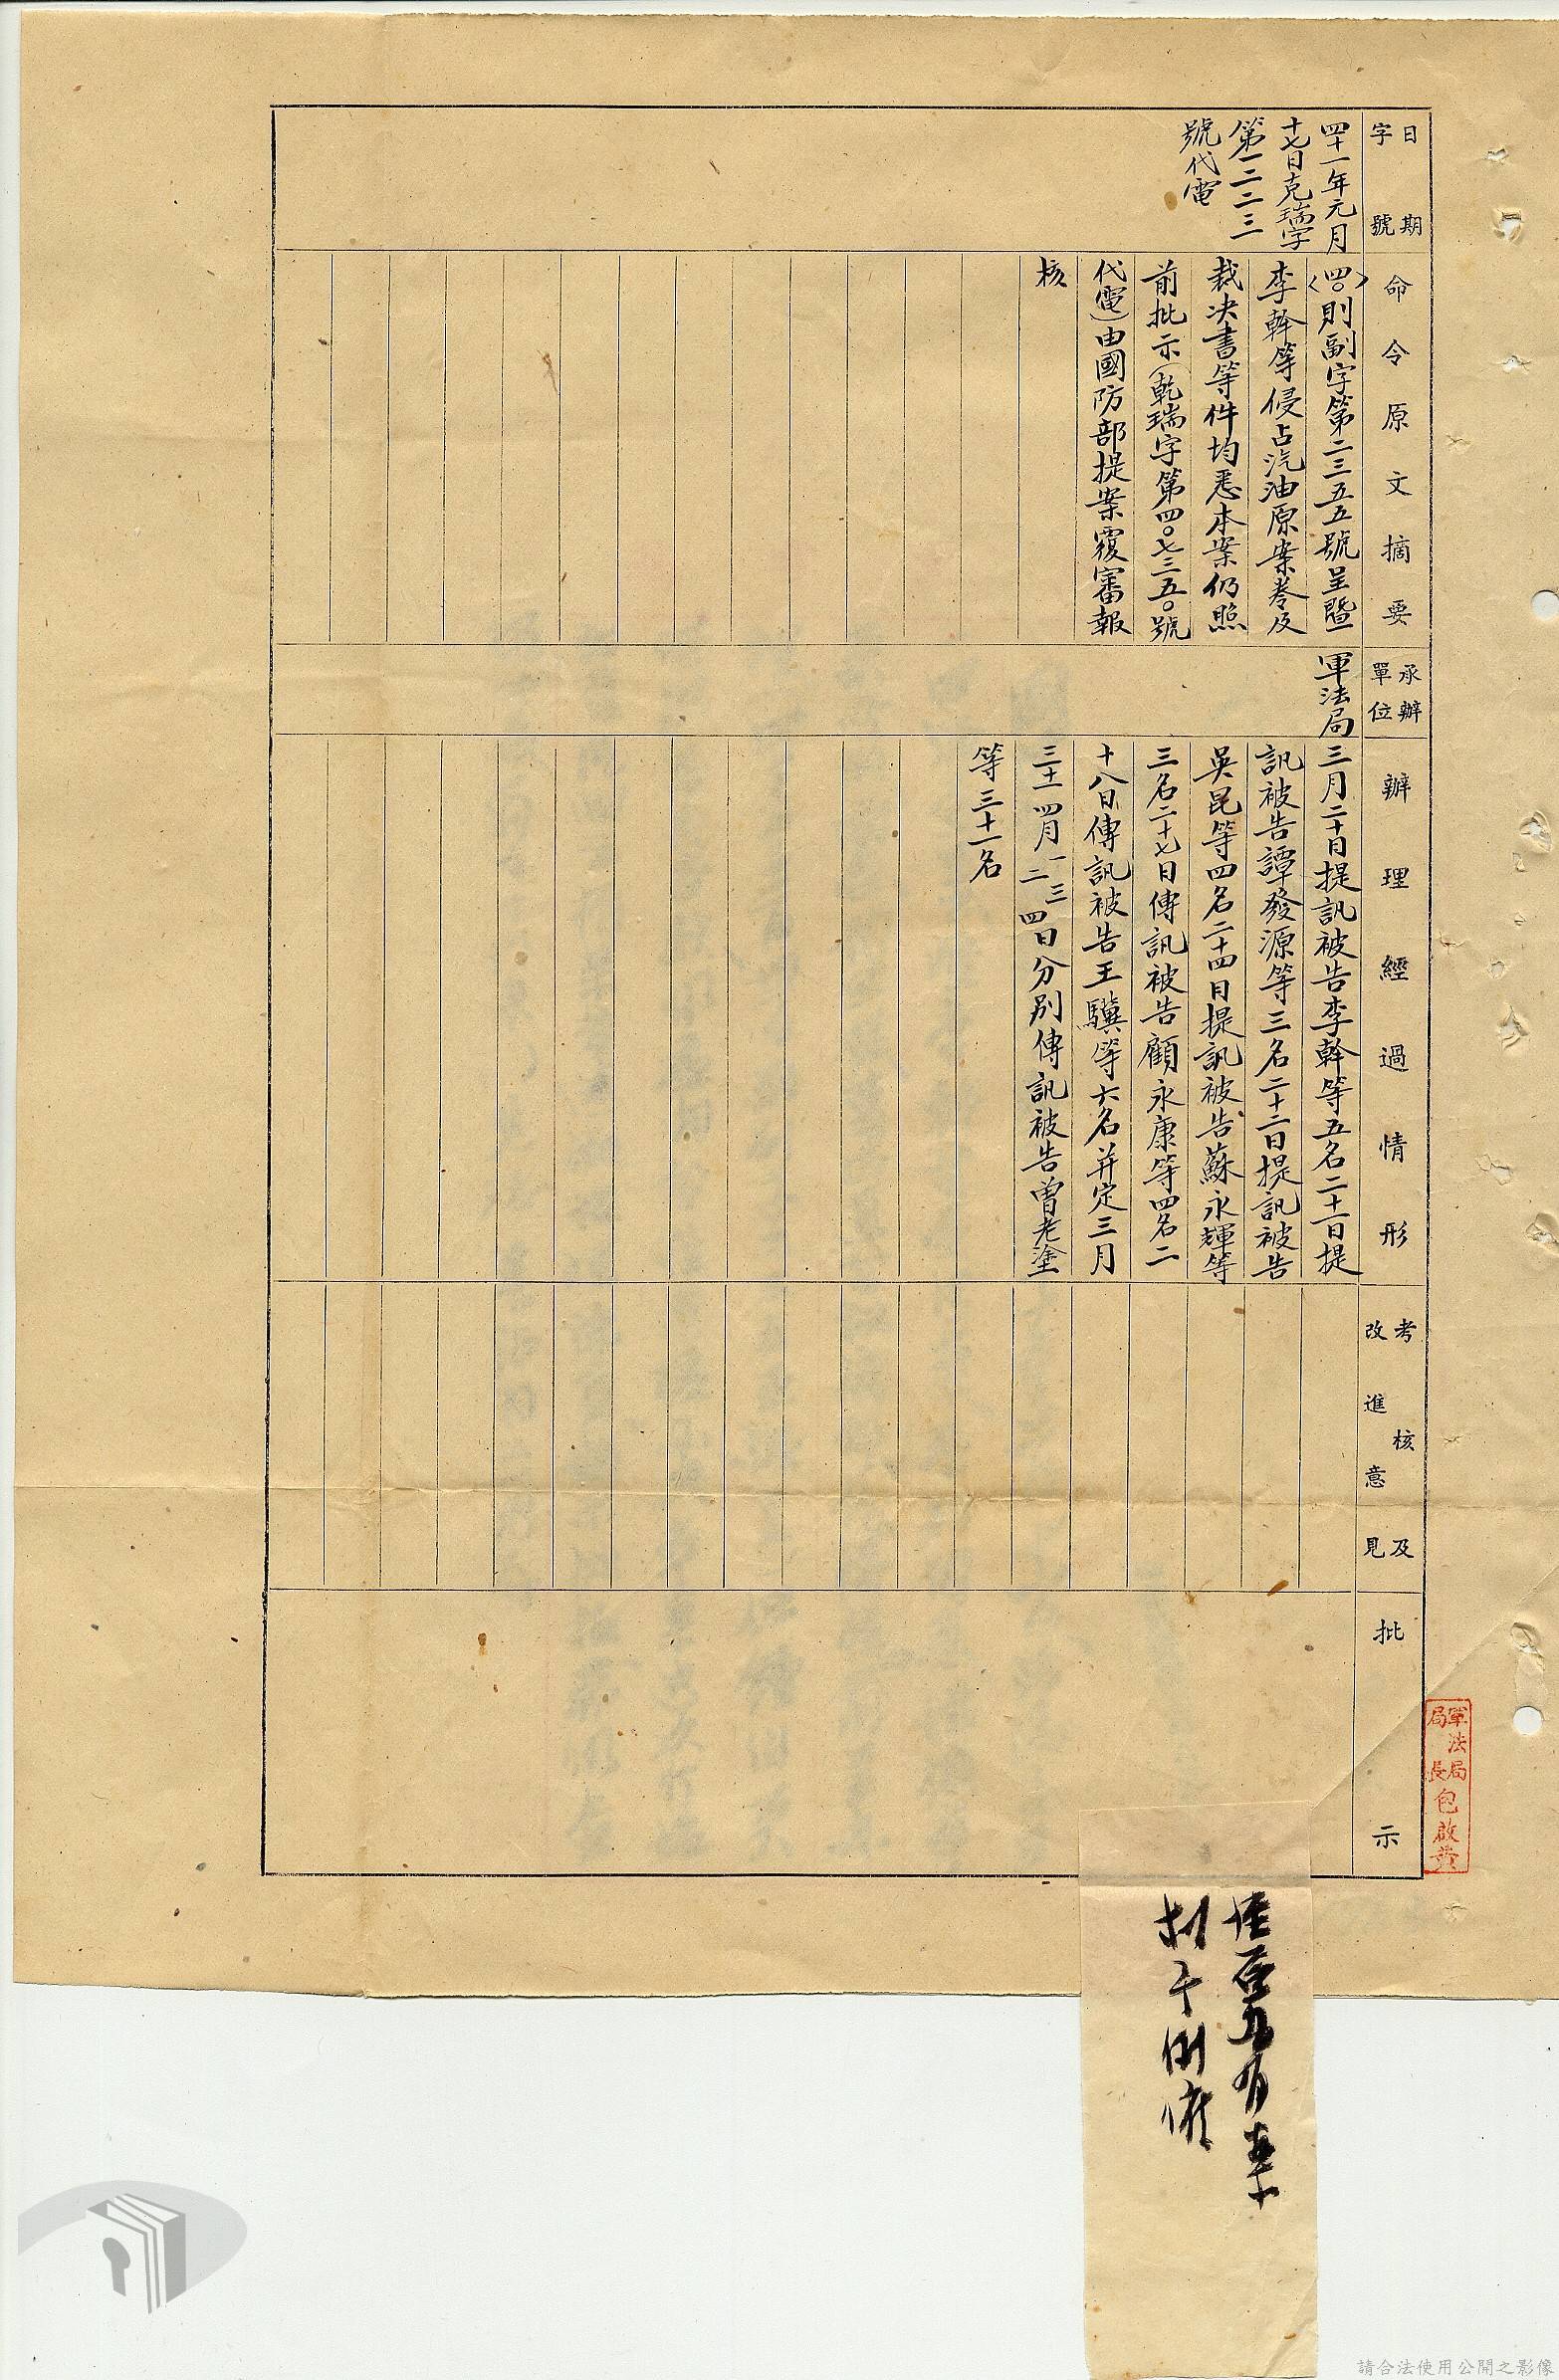 日期
字號
四十一年元月
十七日克瑞字
第一二二三
號代電
命令原文摘要
〈四〇〉則副字第二三五五號呈暨
李幹等侵占汽油原案卷及
裁决書等件均悉本案仍照
前批示(乾瑞字第四〇七三五〇號
代電)由國防部提案覆審報
核
承辦
單位
軍法局
辦理經過情形
三月二十日提訊被告李幹等五名二十一日提
訊被告譚發源等三名二十二日提訊被告
吳昆等四名二十四日提訊被告蘇永輝等
三名二十七日傳訊被告顧永康等四名二
十八日傳訊被告王驥等六名并定三月
三十一四月一二三四日分別傳訊被告曾老塗
等三十一名
考核及
改進意見
批示
軍法局
局長
包啟黃
請合法使用公開之影像